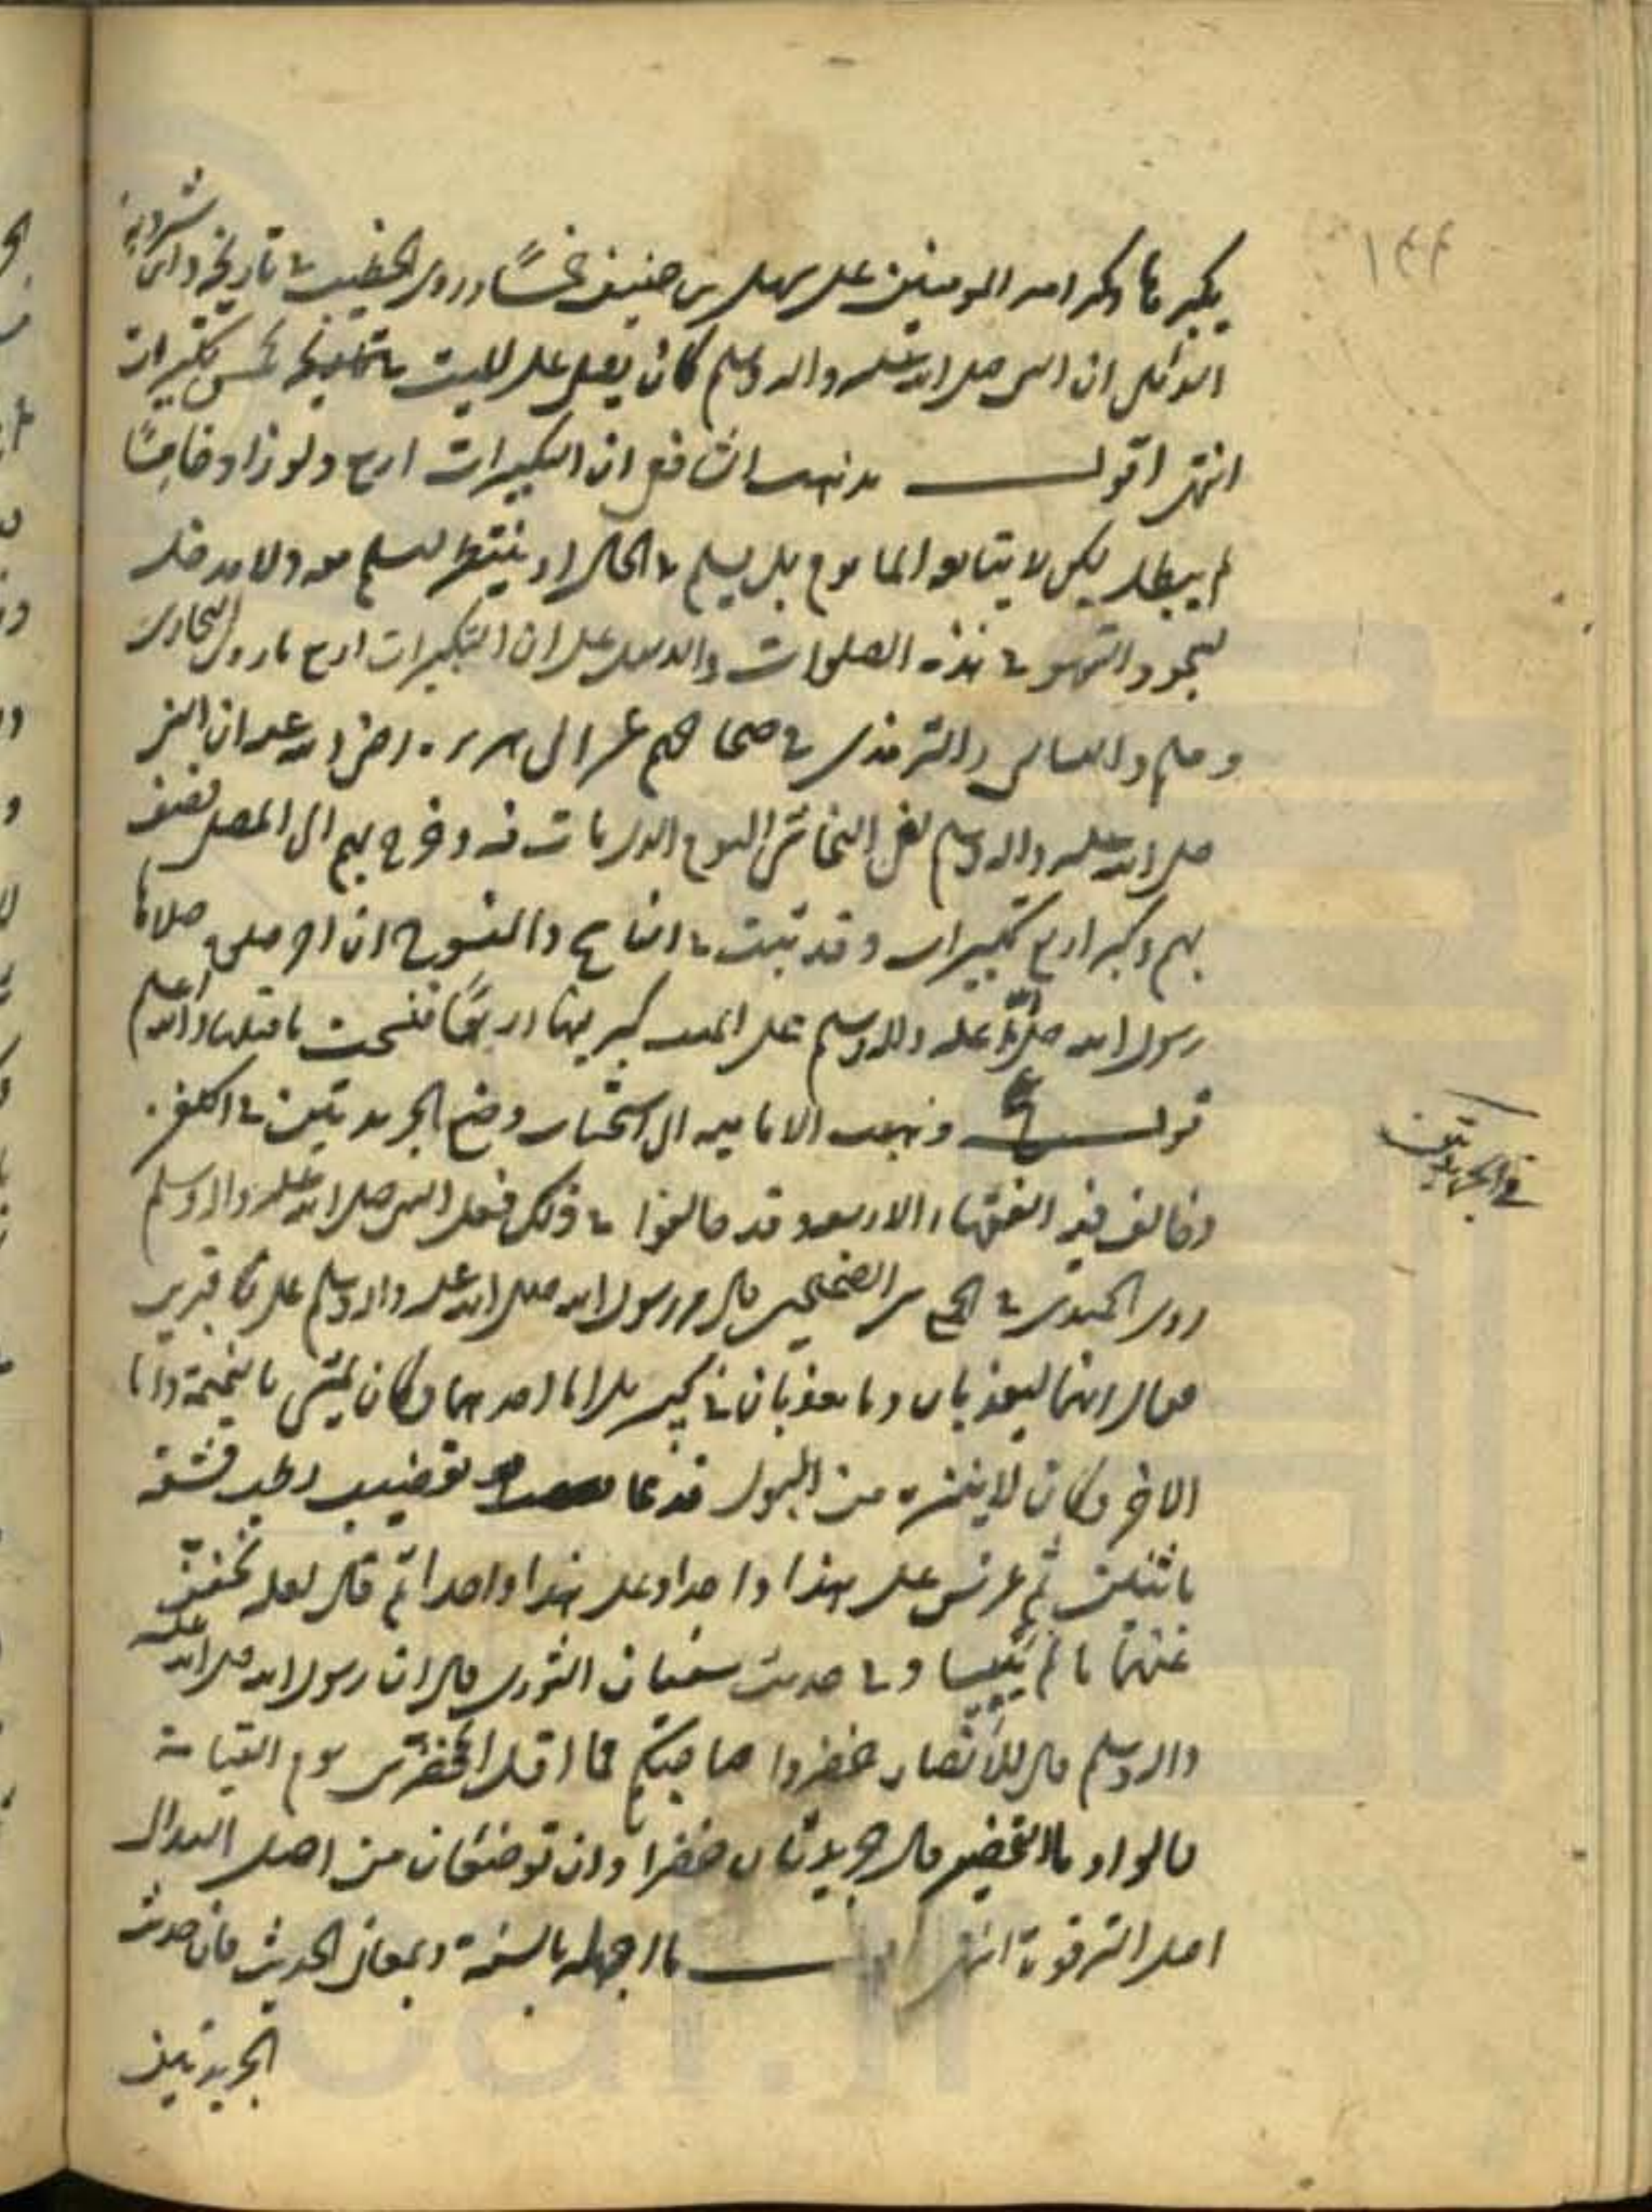 يكبرها وكبر امير المومنين على سهل بن حنيف خمسًا وروى الخطيب في تاريخه وابن شيرويه
ان النبي صلى الله عليه واله وسلم كان يصلى على الميت خمس تكبيرات
انتهى اقول مذهب الشافعي ان التكبيرات اربع ولو زاد خامسًا
لم يبطل لكن لا يتابعه الماموم بل يسلم في الحال او ينتظر ليسلم معه ولا مدخل
لسجود السهو في هذه الصلوات والدليل على ان التكبيرات اربع ما روى البخارى
ومسلم والنسائى والترمذى في صحاحهم عن ابى هريرة رضى الله عنه ان النبى
صلى الله عليه واله وسلم نعى النجاشى اليوم الذى مات فيه وخرج بهم الى المصلى فصف
بهم وكبر اربع تكبيرات وقد ثبت في الناسخ والمنسوخ ان اخر صلوة صلاها
رسول الله صلى الله عليه واله وسلم على الميت كبر فيها اربعًا فنسخت ما قبلها والله اعلم
قوله ذهبت الامامية الى استحباب وضع الجريدتين في الكفن
وخالف فيه الفقهاء الاربعه وقد خالفوا في ذلك فعل النبى صلى الله عليه واله وسلم
روى الحميدى في الجمع بين الصحيحين قال مر رسول الله صلى الله عليه واله وسلم على قبرين
فقال انهما ليعذبان وما يعذبان في كبير بلى اما احدهما فكان يمشى بالنميمة واما
الاخر فكان لا يتنزه من البول فدعا بقضيب رطب فشقه
باثنين ثم غرس على هذا واحدا وعلى هذا واحدا ثم قال لعله يخفف
عنهما ما لم ييبسا وفي حديث سفيان الثورى قال ان رسول الله صلى الله عليه
واله وسلم قال للأنصار خضروا صاحبكم فما اقل المخضرين يوم القيامة
قالوا وما التخضير قال جريدتان خضراوان توضعان من اصل اليد الى
اصل الترقوة انتهى اقول ما اجهله بالسنة وبمعانى الحديث فان حديث
الجريدتين
في الجريدتين
١٤٤